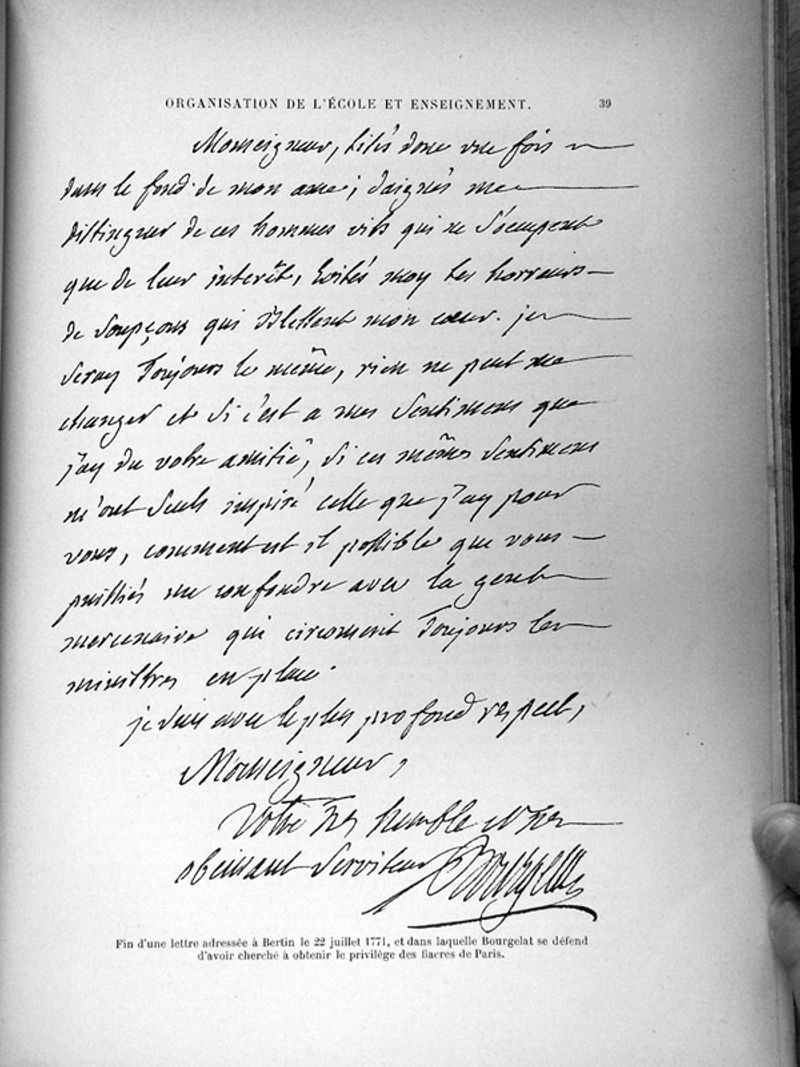 ORGANISATION DE L'ÉCOLE ET ENSEIGNEMENT. 39
Monseigneur, lisés donc une fois
dans le fond de mon ame; daignés me
distinguer de ces hommes vils qui ne s'ocupent
que de leur interêt, Evités moy les horreurs
de soupçons qui blessent mon cœur. je
seray Toujours le même, rien ne peut me
changer et si c'est a mes sentimens que
j'ay du votre amitié, si ces mêmes sentimens
m'ont seuls inspiré celle que j'ay pour
vous, comment est il possible que vous
puissiés me confondre avec la gent
mercenaire qui circonvient Toujours les
ministres en place.
je suis avec le plus profond respect,
Monseigneur,
votre Tres humble et Tres
obeissant serviteur Bourgelat
Fin d'une lettre adressée à Bertin le 22 juillet 1771, et dans laquelle Bourgelat se défend
d'avoir cherché à obtenir le privilège des fiacres de Paris.